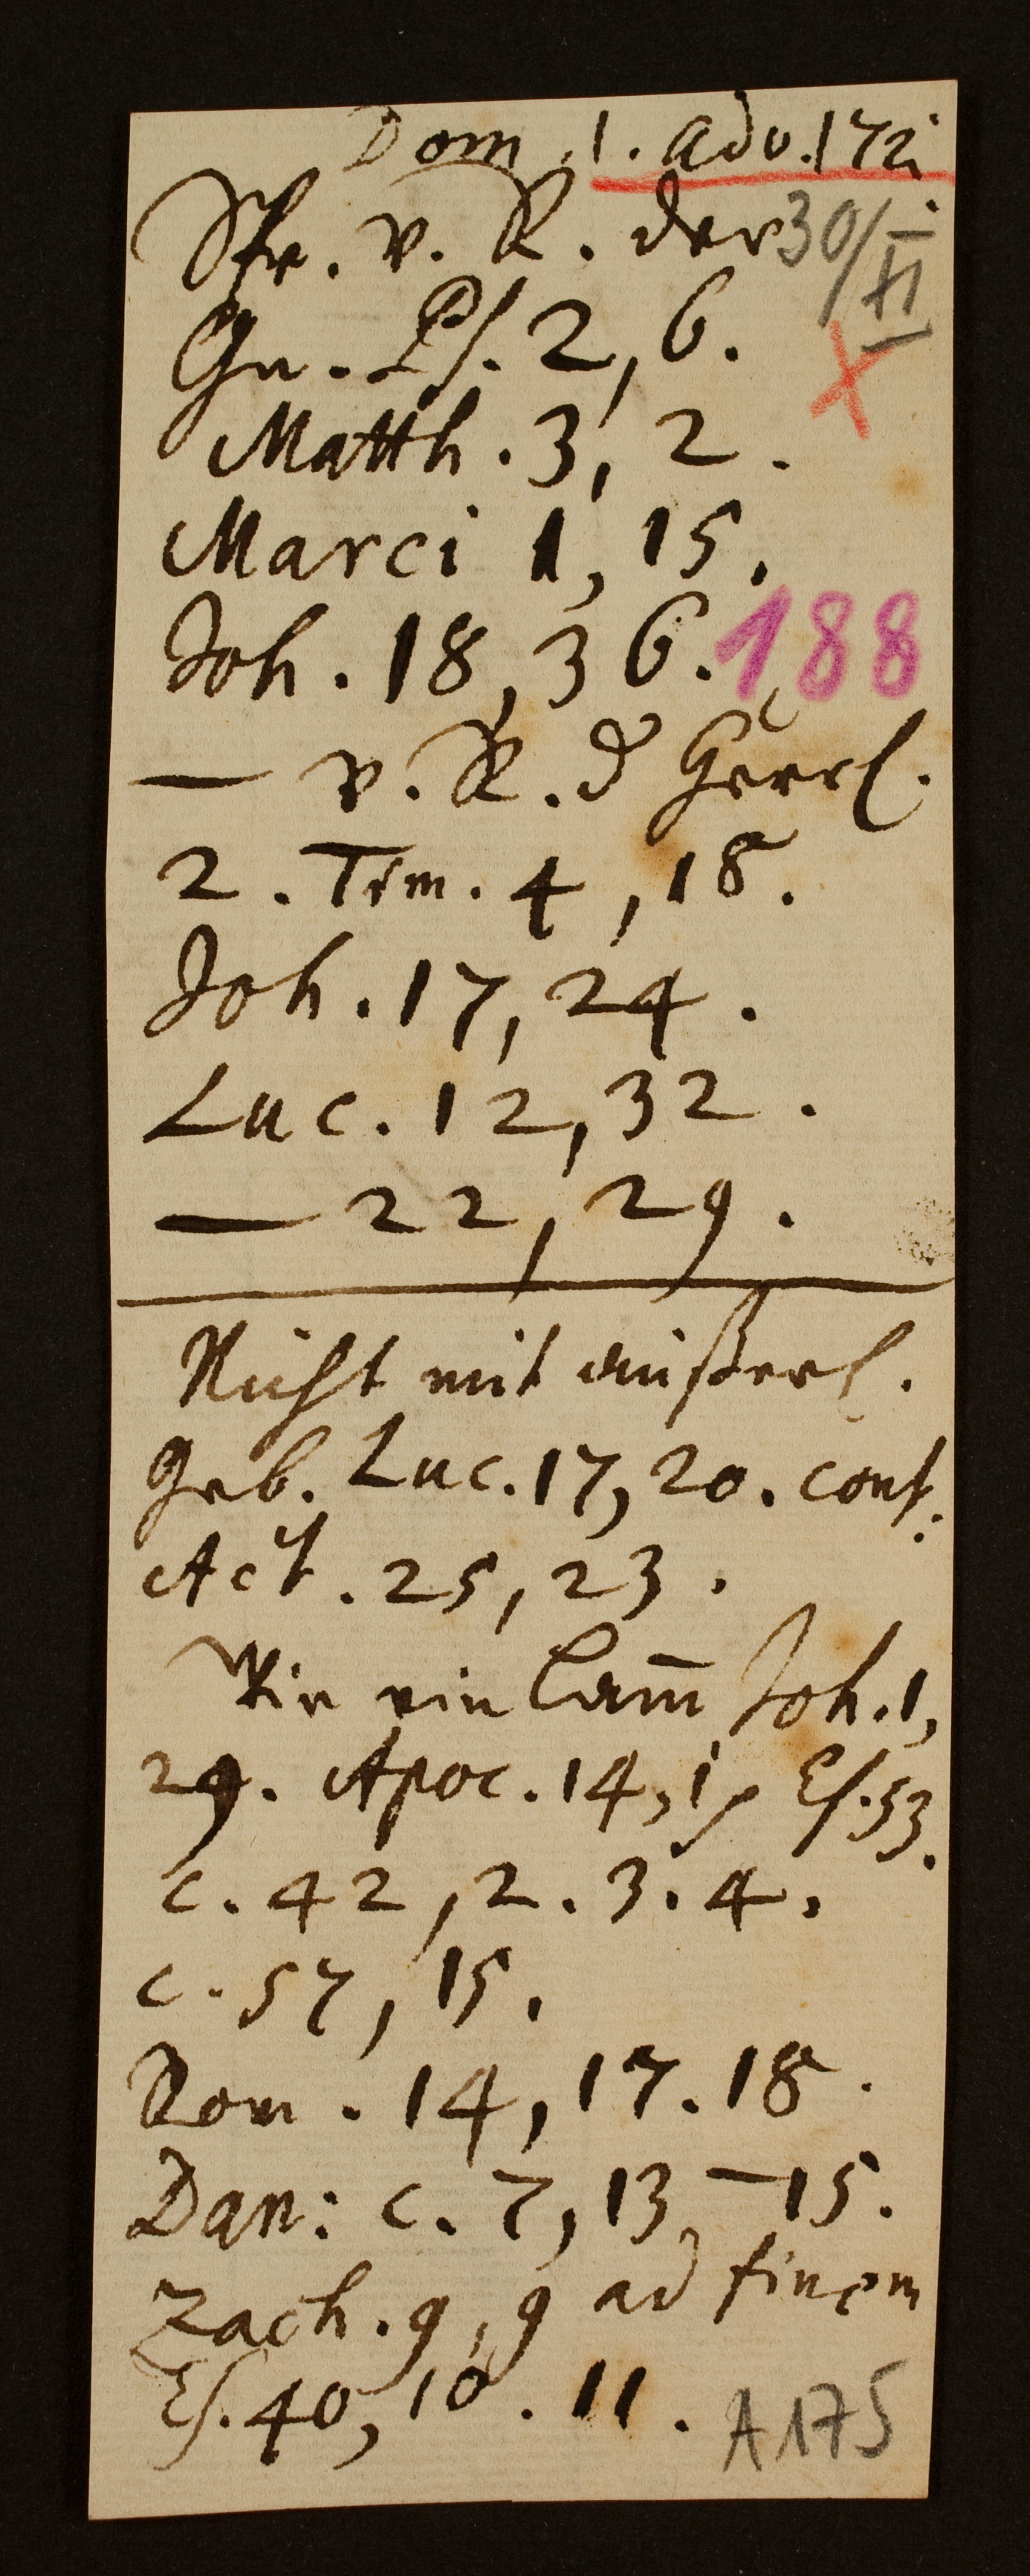 Dom. 1. Adv. 1721
Spr. v. R. der 30/XI
Gn. Ps. 2, 6.
Matth. 3, 2.
Marci 1, 15.
Joh. 18, 36. 188
— v. R. d Herrl.
2. Tim. 4, 18.
Joh. 17, 24.
Luc. 12, 32.
— 22, 29.
Nicht mit äußerl.
Geb. Luc. 17, 20. conf.
Act. 25, 23.
Wie ein Lam̄ Joh. 1,
29. Apoc. 14, 1, Es. 53.
c. 42, 2. 3. 4.
c. 57, 15.
Rom. 14, 17. 18.
Dan: c. 7, 13—15.
Zach. 9, 9 ad finem
Es. 40, 10. 11. A 175